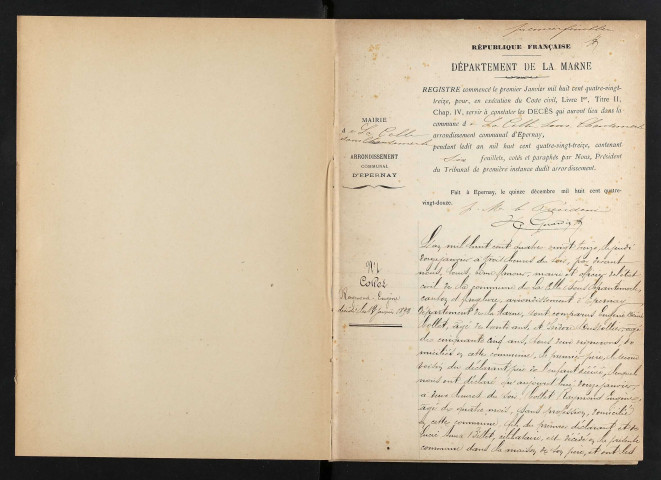 premier feuillet
RÉPUBLIQUE FRANÇAISE
DÉPARTEMENT DE LA MARNE
REGISTRE commencé le premier Janvier mil huit cent quatre-vingt-
treize, pour, en exécution du Code civil, Livre Ier, Titre II,
Chap. IV, servir à constater les DÉCÈS qui auront lieu dans la
commune d e La Celle sous Chantemerle
arrondissement communal d'Epernay,
pendant ledit an mil huit cent quatre-vingt-treize, contenant
six feuillets, cotés et paraphés par Nous, Président
du Tribunal de première instance dudit arrondissement.
Fait à Epernay, le quinze décembre mil huit cent quatre-
vingt-douze.
p. Mr le Président
MAIRIE
de La Celle
sous Chantemerle
ARRONDISSEMENT
COMMUNAL
D'EPERNAY
N° 1
Collet
Raymond Eugène
décédé le 12 janvier 1893
L'an mil huit cent quatre vingt treize, le jeudi
douze janvier à trois heures du soir, par devant
nous, maire et officier de l'état
civil de la commune de La Celle sous Chantemerle,
canton d'Anglure, arrondissement d'Epernay,
département de la Marne, sont comparus
Collet, âgé de trente ans, et Isidore âgé
de cinquante cinq ans, tous deux vignerons, do
miciliés en cette commune, le premier père, le second
voisin du déclarant père de l'enfant décédé, lesquels
nous ont déclaré qu'aujourd'hui douze janvier
à deux heures du soir, Collet Raymond Eugène,
âgé de quatre mois, sans profession, domicilié
en cette commune, fils du premier déclarant et de
célibataire, est décédé en la présente
commune dans la maison de son père, et ont les